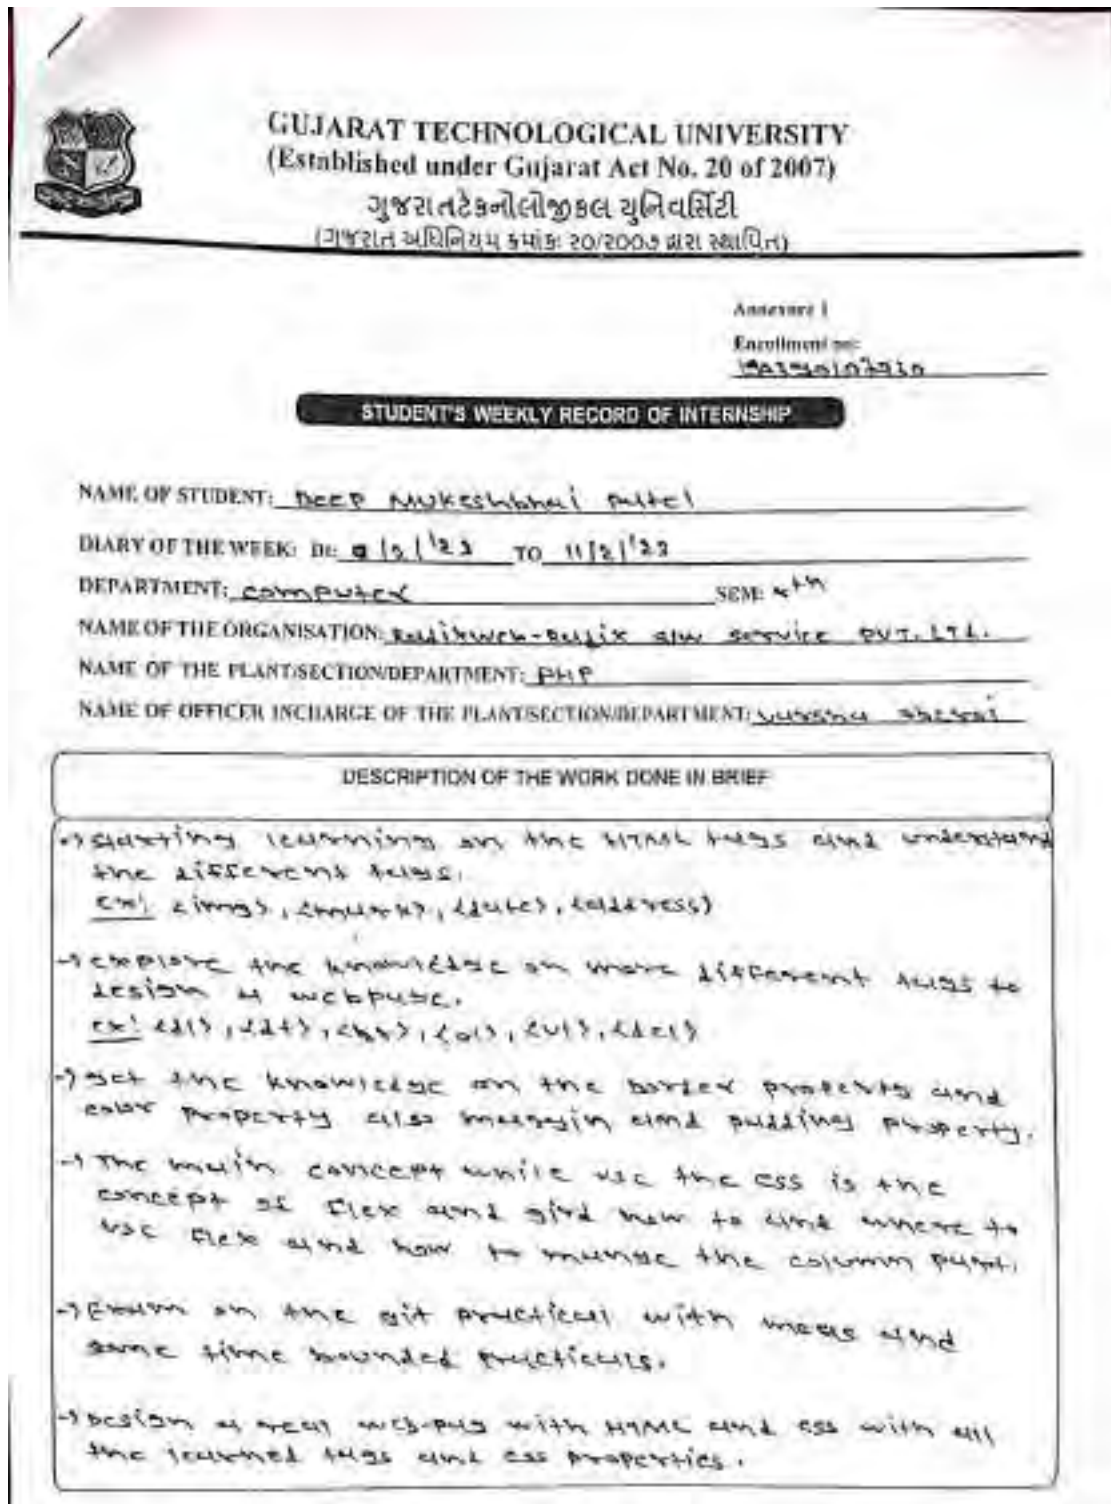 GUJARAT TECHNOLOGICAL UNIVERSITY
(Established under Gujarat Act No. 20 of 2007)
ગુજરાતટેકનોલોજીકલ યુનિવર્સિટી
(ગુજરાત અધિનિયમ ક્રમાંક: ૨૦/૨૦૦૭ દ્વારા સ્થાપિત)
Annexure 1
Enrollment no:
STUDENT'S WEEKLY RECORD OF INTERNSHIP
NAME OF STUDENT: Deep Mukeshbhai Patel
DIARY OF THE WEEK: Dt: /2/'23 TO 11/2/'23
DEPARTMENT: Computer SEM: th
NAME OF THE ORGANISATION: s/w service PVT. LTD.
NAME OF THE PLANT/SECTION/DEPARTMENT: PHP
NAME OF OFFICER INCHARGE OF THE PLANT/SECTION/DEPARTMENT:
DESCRIPTION OF THE WORK DONE IN BRIEF
→ starting learning on the HTML tags and understand
the different tags.
ex: <img>, <mark>, <date>, <address>
→ explore the knowledge on more different tags to
design a webpage.
ex: <dl>, <dt>, <ol>, <ul>, <del>
→ get the knowledge on the border property and
color property also margin and padding property.
→ The main concept while use the css is the
concept of flex and gird how to and where to
use flex and how to mange the column part.
→ Exam on the git practical with and
some time bounded practicals.
→ Design a real web-pag with HTML and css with all
the learned tags and css properties.